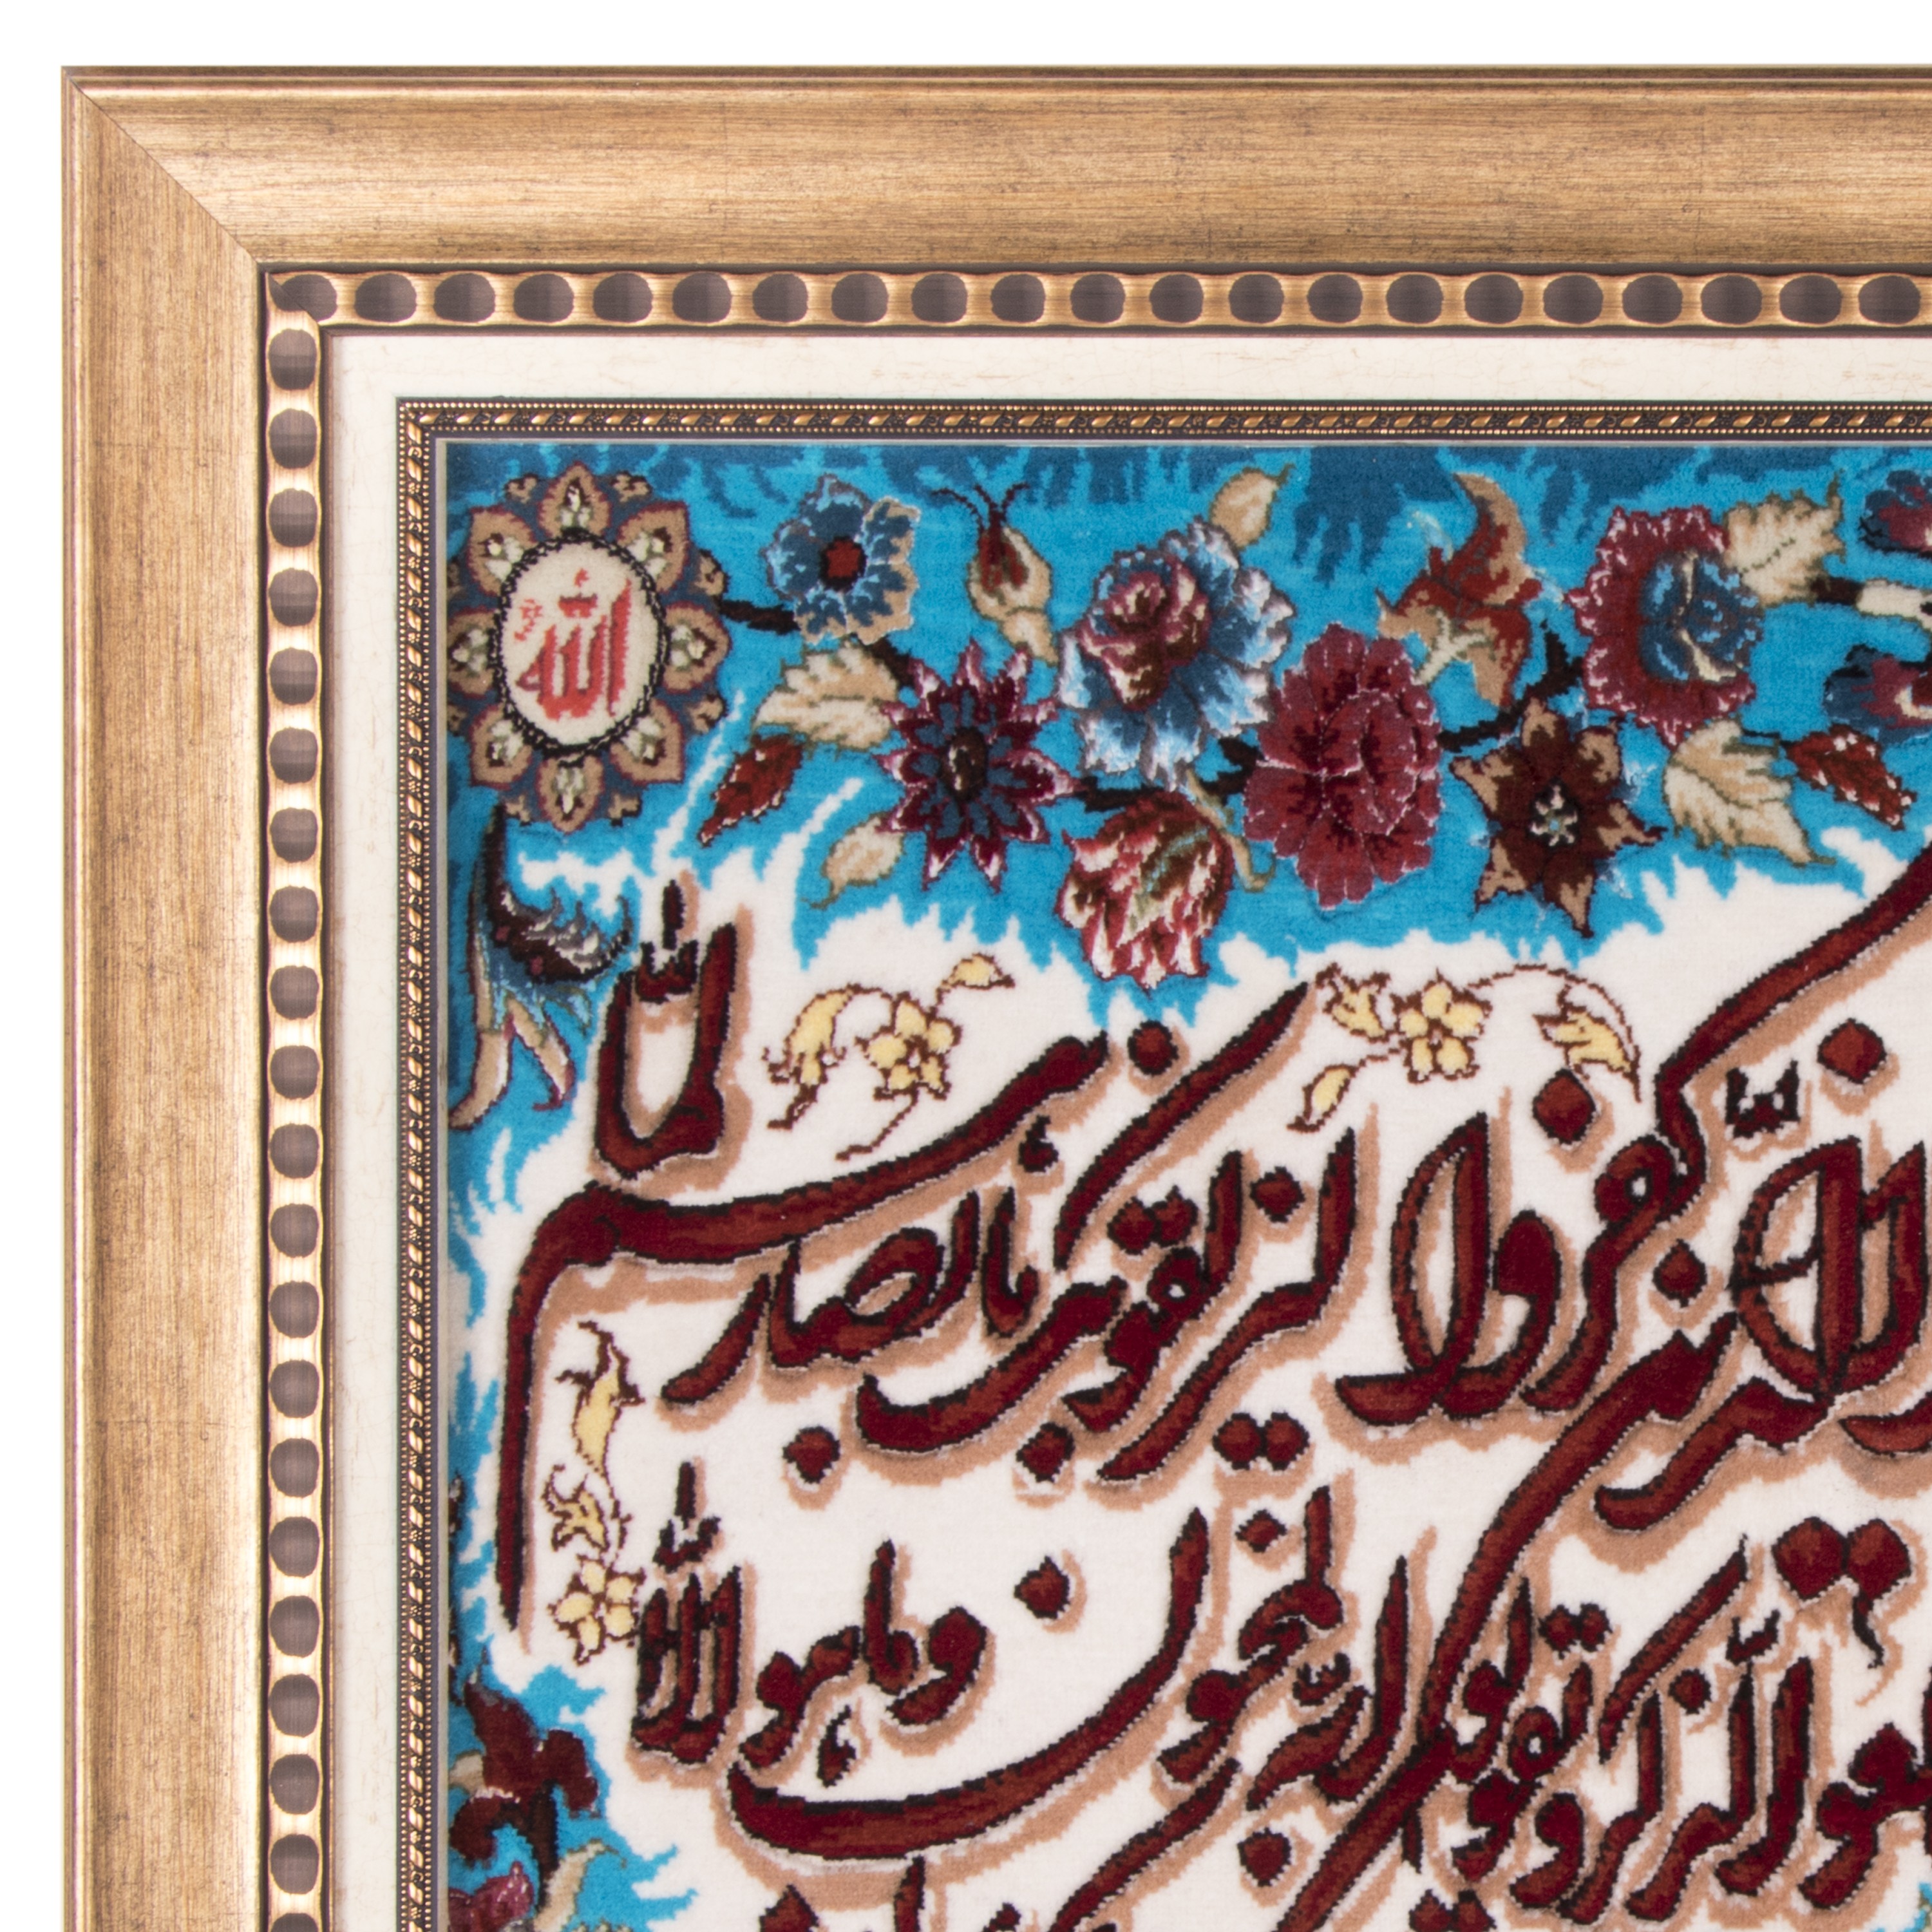 الله
الذين كفروا ليزلقونك بابصارهم لما
الذكر ويقولون انه لمجنون وما هو الا